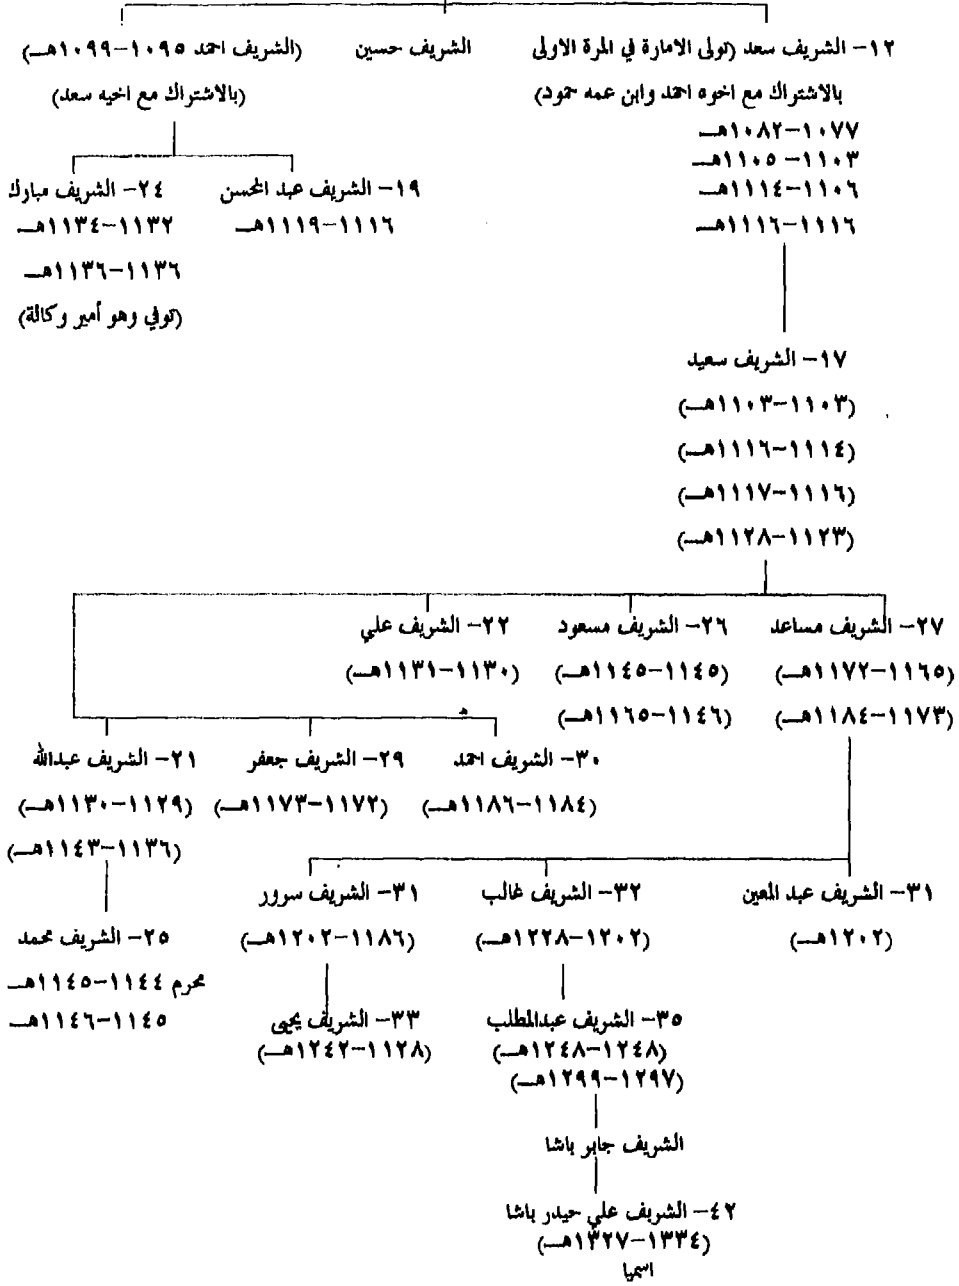 ١٢- الشريف سعد (تولى الامارة في المرة الاولى
بالاشتراك مع اخوه احمد وابن عمه حمود)
١٠٧٧-١٠٨٢هـ
١١٠٣-١١٠٥هـ
١١٠٦-١١١٤هـ
١١١٦-١١١٦هـ
الشريف حسين
(الشريف احمد ١٠٩٥-١٠٩٩هـ)
(بالاشتراك مع اخيه سعد)
١٩- الشريف عبد المحسن
١١١٦-١١١٩هـ
٢٤- الشريف مبارك
١١٣٢-١١٣٤هـ
١١٣٦-١١٣٦هـ
(توفي وهو أمير وكالة)
١٧- الشريف سعيد
(١١٠٣-١١٠٣هـ)
(١١١٤-١١١٦هـ)
(١١١٦-١١١٧هـ)
(١١٢٣-١١٢٨هـ)
٢٧- الشريف مساعد
(١١٦٥-١١٧٢هـ)
(١١٧٣-١١٨٤هـ)
٢٦- الشريف مسعود
(١١٤٥-١١٤٥هـ)
(١١٤٦-١١٦٥هـ)
٢٢- الشريف علي
(١١٣٠-١١٣١هـ)
٣٠- الشريف احمد
(١١٨٤-١١٨٦هـ)
٢٩- الشريف جعفر
(١١٧٢-١١٧٣هـ)
٢١- الشريف عبدالله
(١١٢٩-١١٣٠هـ)
(١١٣٦-١١٤٣هـ)
٣١- الشريف عبد المعين
(١٢٠٢هـ)
٣٢- الشريف غالب
(١٢٠٢-١٢٢٨هـ)
٣١- الشريف سرور
(١١٨٦-١٢٠٢هـ)
٢٥- الشريف محمد
محرم ١١٤٤-١١٤٥هـ
١١٤٥-١١٤٦هـ
٣٥- الشريف عبدالمطلب
(١٢٤٨-١٢٤٨هـ)
(١٢٩٧-١٢٩٩هـ)
٣٣- الشريف يحيى
(١١٢٨-١٢٤٢هـ)
الشريف جابر باشا
٤٢- الشريف علي حيدر باشا
(١٣٣٤-١٣٢٧هـ)
اسميا